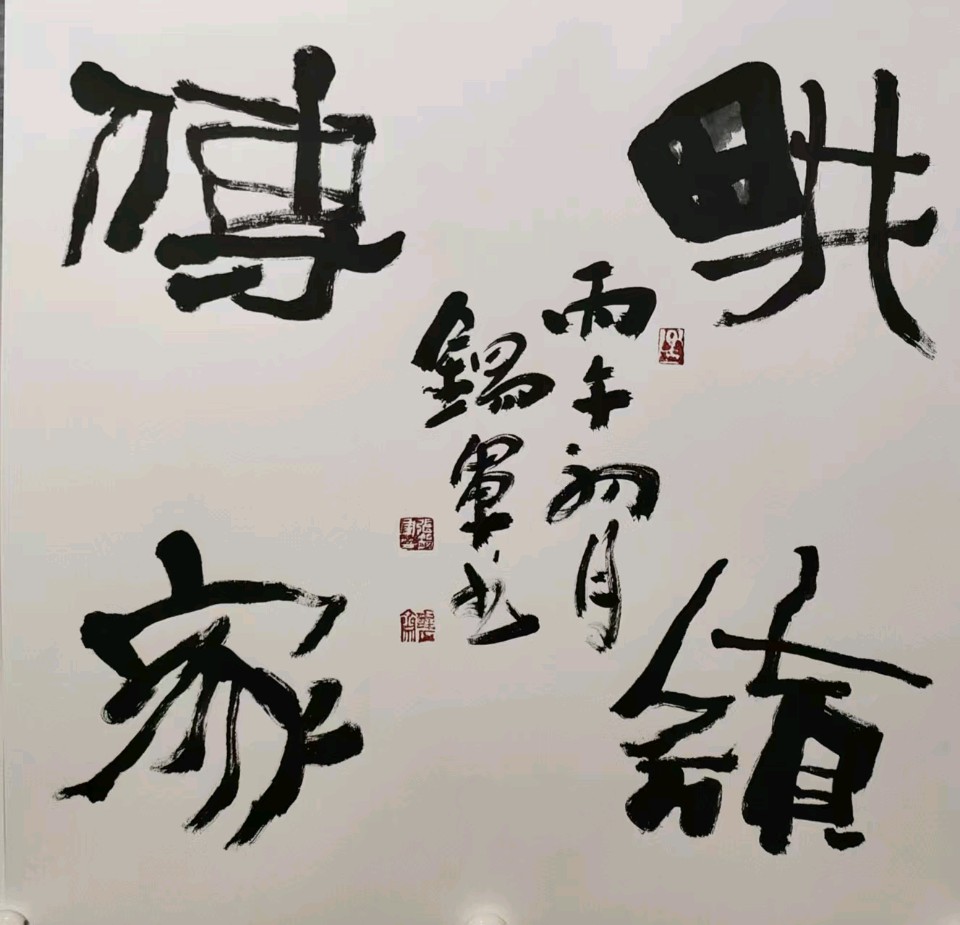 畊讀
傳家
丙午初月
錫軍书